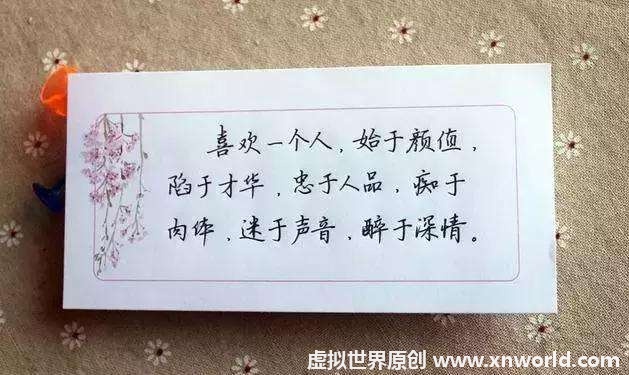 喜欢一个人，始于颜值，
陷于才华，忠于人品，痴于
肉体，迷于声音，醉于深情。
虚拟世界原创 www.xnworld.com